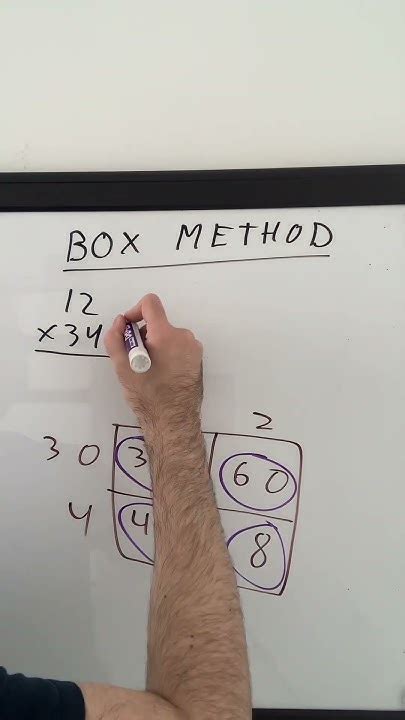 BOX METHOD
12
×34
2
30 3 60
4 4 8